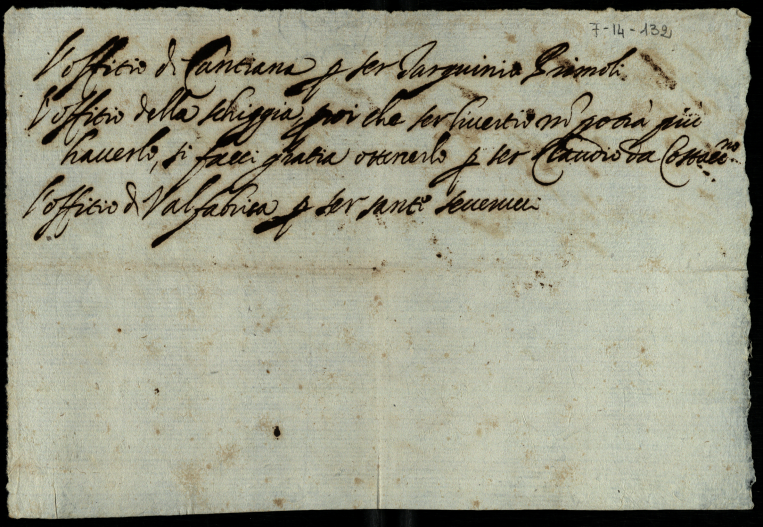 7-14-132
l'offitio di Cantiana p ser Tarquinio Primoli.
l'offitio della schiggia, poi che ser livertio nō potrà più
haverlo, si facci gratia ottenerlo p ser Claudio da
l'offitio di Valfabrica p ser santi severucci